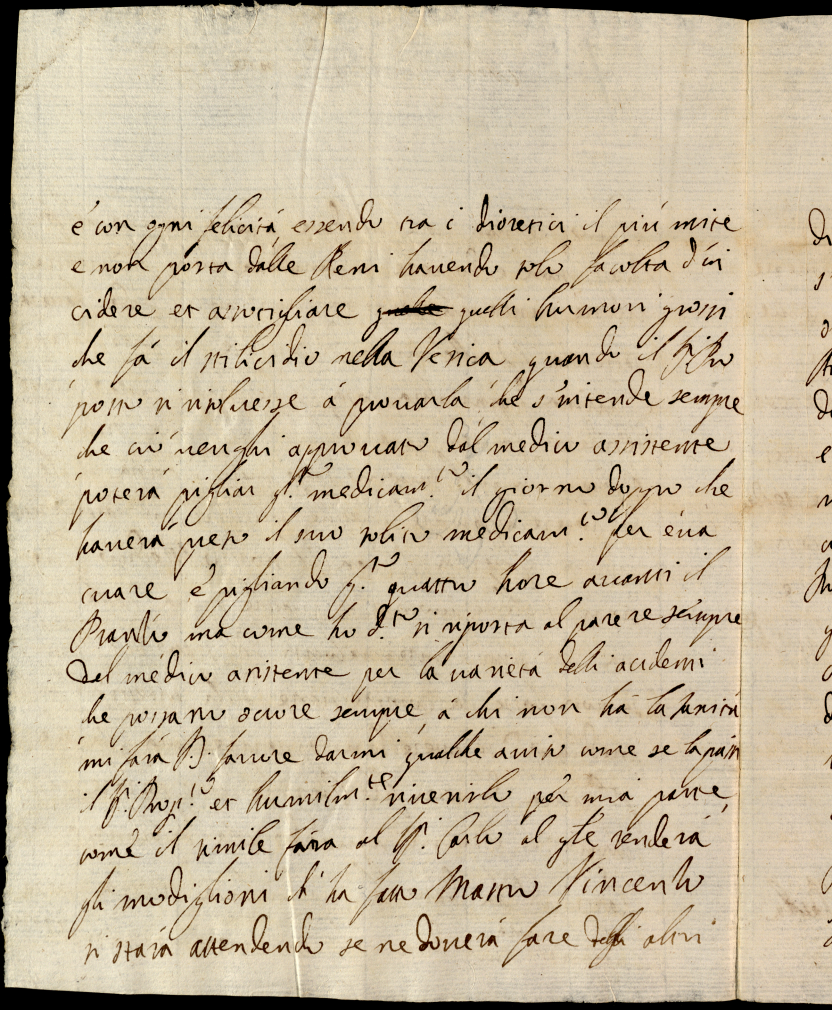 é con ogni felicità essendo tra i dioretici il più mite
e non porta dalle Reni havendo solo facolta d'in
cidere et assotigliare quelli humori grossi
che fà il stilicidio nella Vesica quando il
posso si risoluesse à prouarla che s'intende sempre
che ciò uenghi approuato dal medico assistente
poterà pigliar q.to medicam.to il giorno doppo che
hauerà preso il suo solito medicam.to per eua
cuare e pigliando q.to quattro hore auanti il
Pranso ma come ho d.to si riporta al parere sempre
del medico asistente per la varietà delli acidenti
che possano ocorre sempre à chi non hà la sanità
mi farà favore darmi qualche auiso come se la passi
il et humilm.te riuerirlo per mia parte,
come il simile farà al Sr. Carlo al qle renderà
gli modiglioni ch' ha fatto Mastro Vincenzo
si starà attendendo se ne douerà fare degli altri